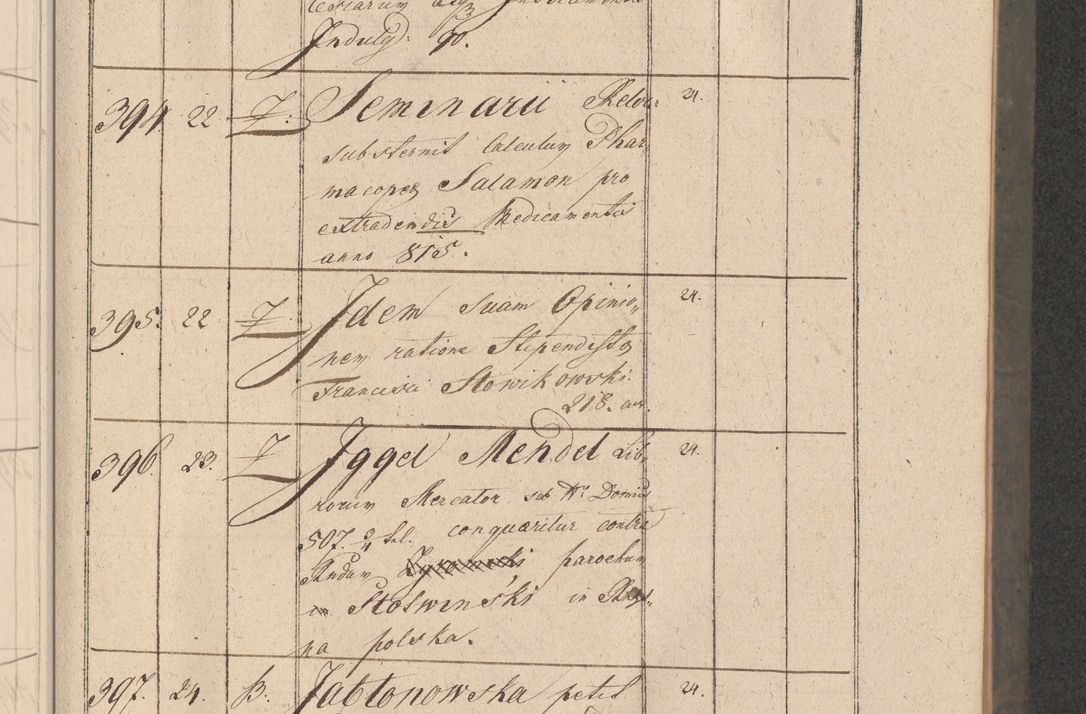 Indulg: 90.
394. 22 Z: Seminarii Rector 24.
substernit Calculum Phar
macopeg Salamon pro
extradendis Medicamentis
anno 815.
395. 22 Z Idem suam Opinio„ 24.
nem ratione Stipendisty
Francisci Stowikowski.
218.
396. 23. Z Iggel Mendel Lib„ 24.
rorum Mercator sub Nr Domus
507. conquæritur contra
Rndum parochum
Stoswinski in
na polska.
397. 24. B. Jabłonowska petit 24.